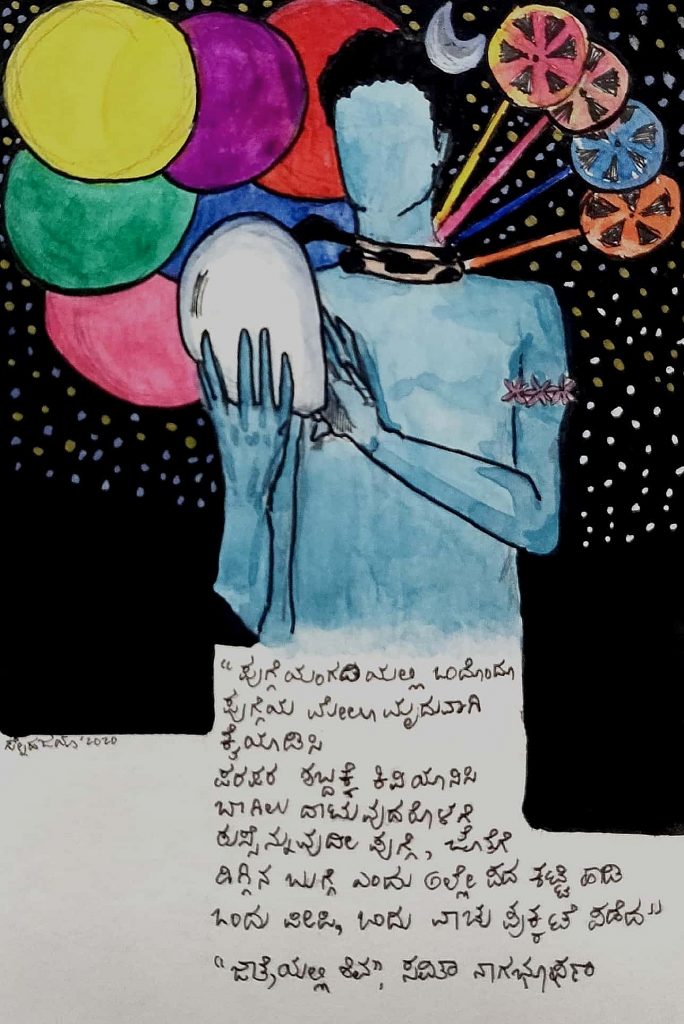 "ಪುಗ್ಗೆಯಂಗಡಿಯಲ್ಲಿ ಒಂದೊಂದೂ
ಪುಗ್ಗೆಯ ಮೇಲೂ ಮೃದುವಾಗಿ
ಕೈಯಾಡಿಸಿ
ಪರಪರ ಶಬ್ದಕ್ಕೆ ಕಿವಿಯಾನಿಸಿ
ಬಾಗಿಲು ದಾಟುವುದರೊಳಗೆ
ಠುಸ್ಸೆನ್ನುವುದೀ ಪುಗ್ಗೆ, ಜೊತೆಗೆ
ಹಿಗ್ಗಿನ ಬುಗ್ಗೆ ಎಂದು ಅಲ್ಲೇ ಪದ ಕಟ್ಟಿ ಹಾಡಿ
ಒಂದು ಪೀಪಿ, ಒಂದು ವಾಚು ಪುಕ್ಕಟೆ ಪಡೆದ"
"ಜಾತ್ರೆಯಲ್ಲಿ ಶಿವ", ಸವಿತಾ ನಾಗಭೂಷಣ